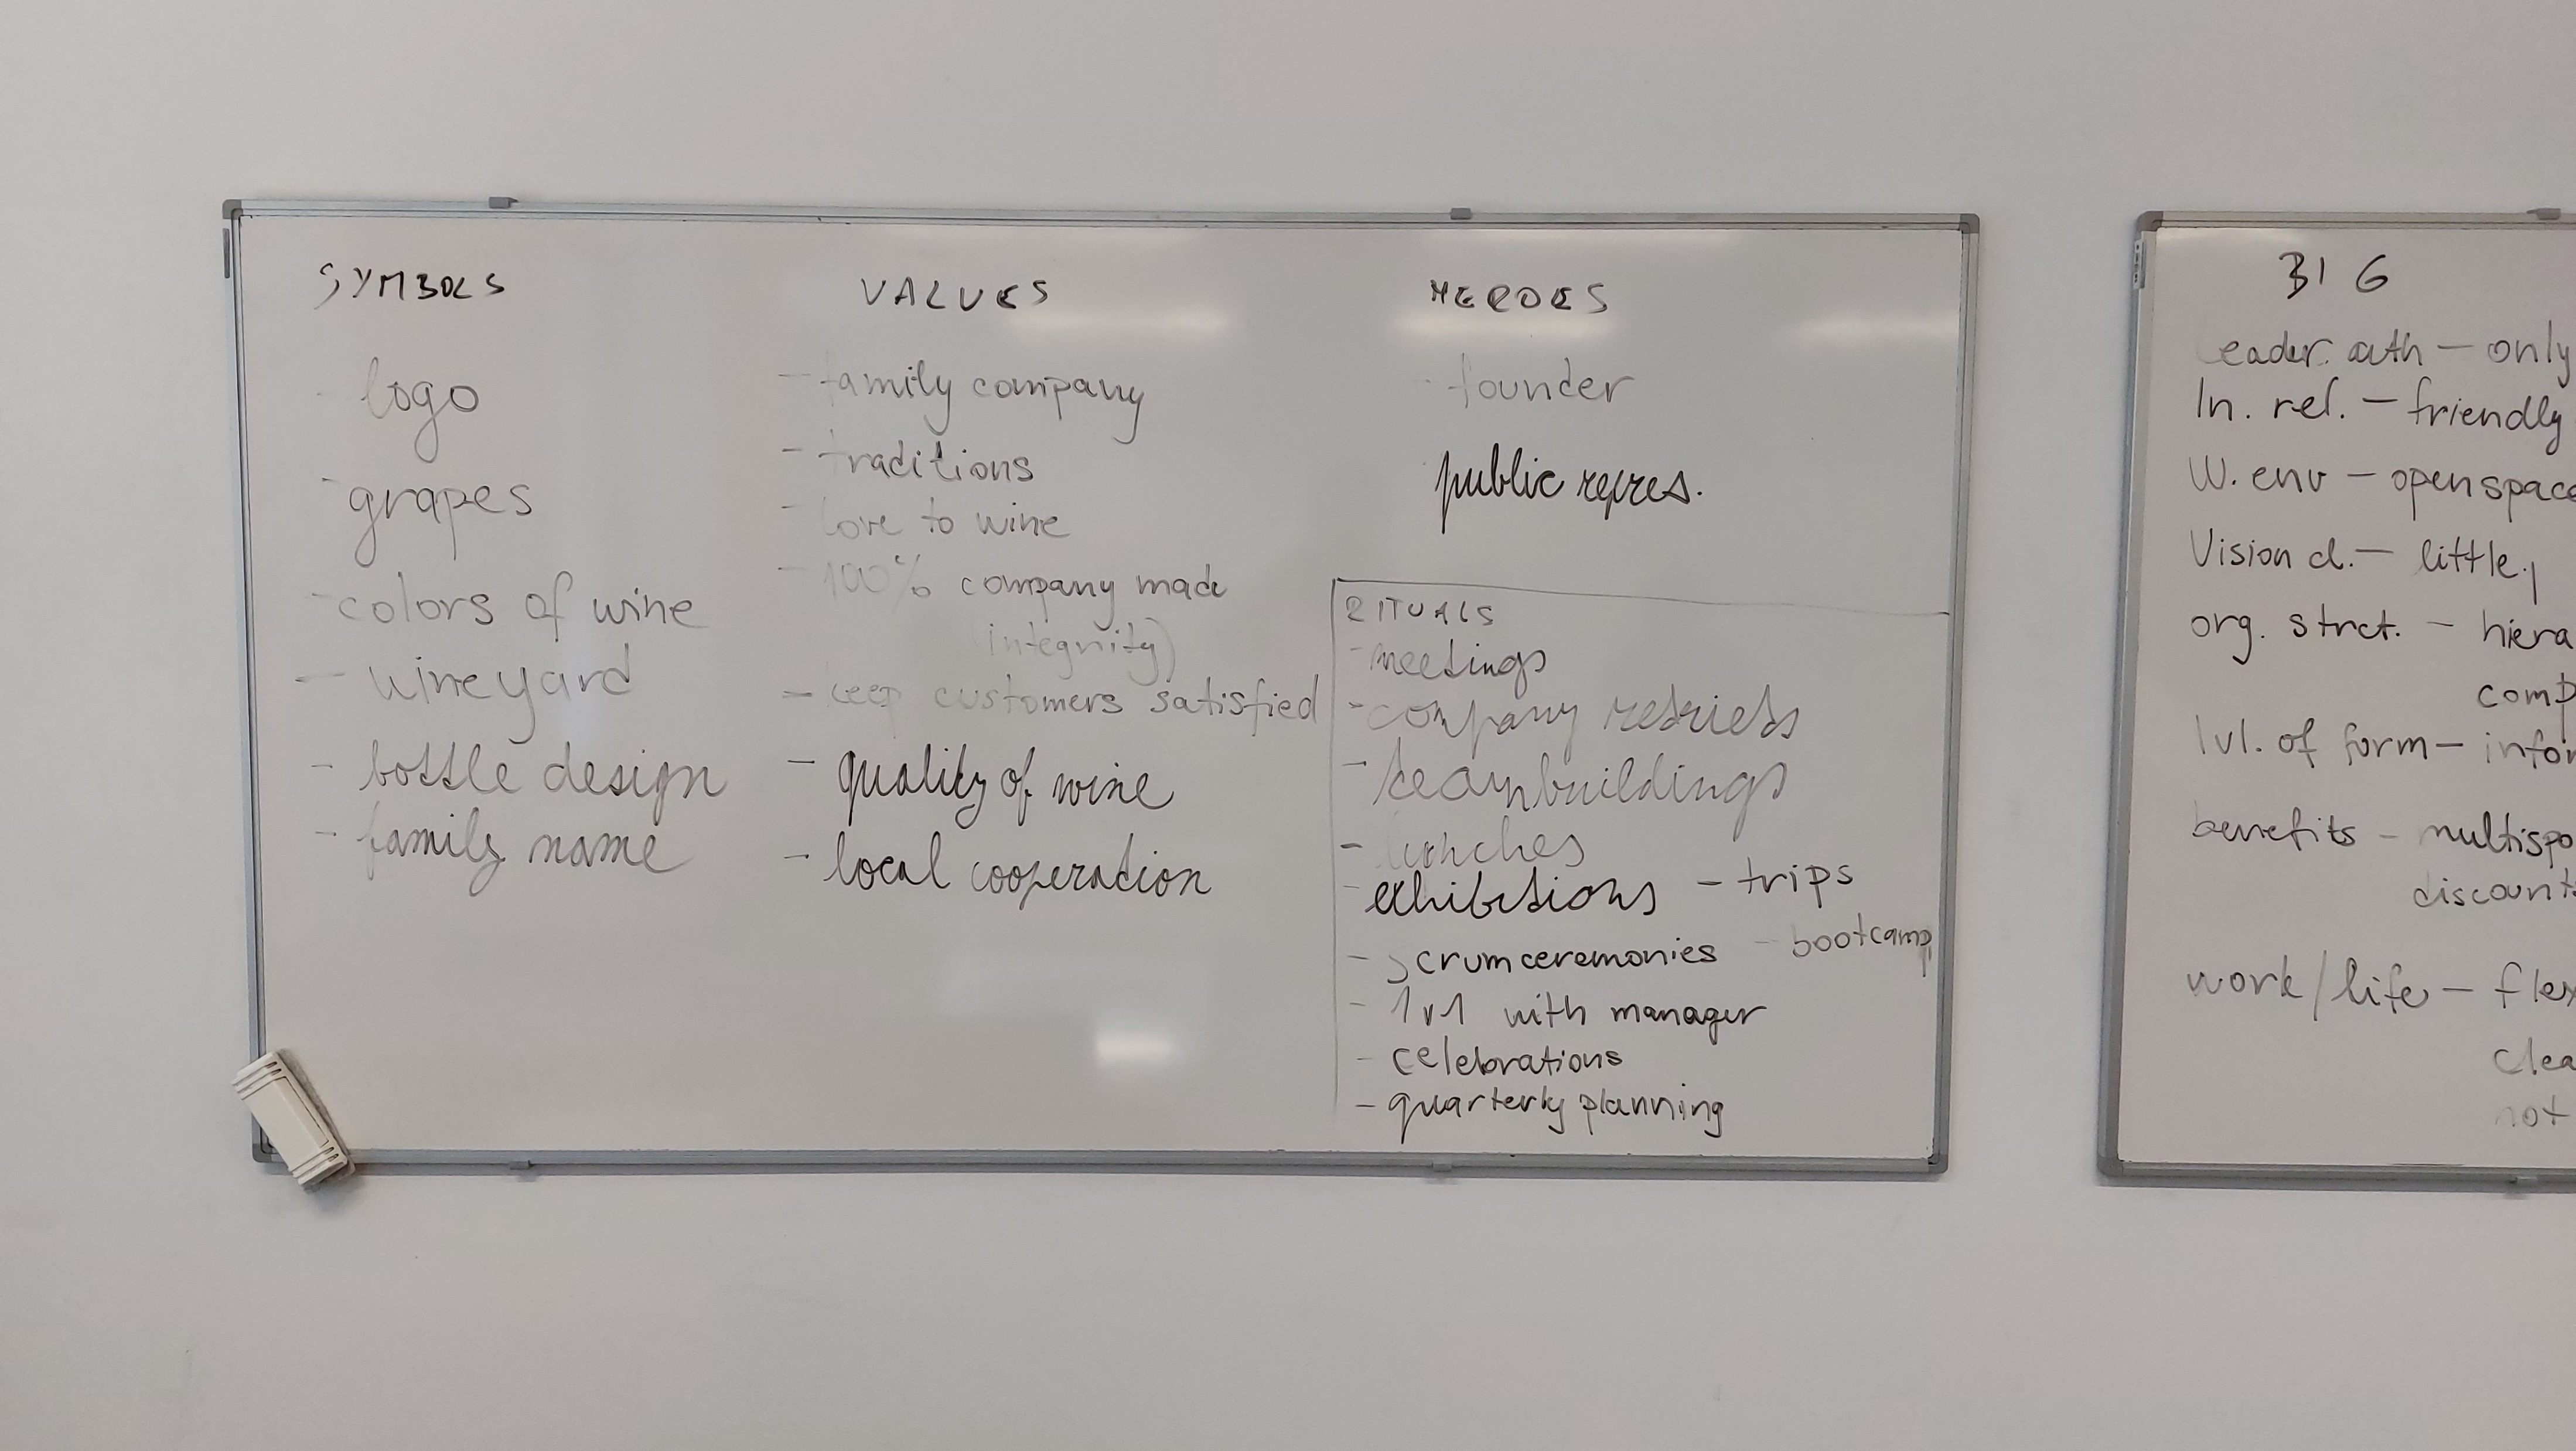 SYMBOLS
logo
- grapes
- colors of wine
- wineyard
- bottle design
- family name
VALUES
- family company
- traditions
- love to wine
- 100% company made
(integrity)
- keep customers satisfied
- quality of wine
- local cooperation
HEROES
- founder
public repres.
RITUALS
- meetings
- company retriets
- teambuildings
- lunches
- exhibitions - trips
- scrum ceremonies - bootcamp
- 1v1 with manager
- celebrations
- quarterly planning
BIG
Leader. auth - only
In. rel. - friendly
W. env - openspace
Vision cl. - little,
org. strct. - hiera
comp
lvl. of form - infor
benefits - multispo
discounts
work/life - flex
clea
not